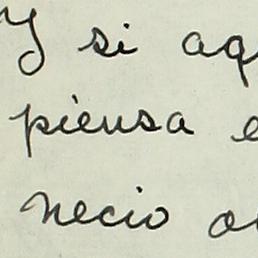 Y si aq
piensa e
necio o